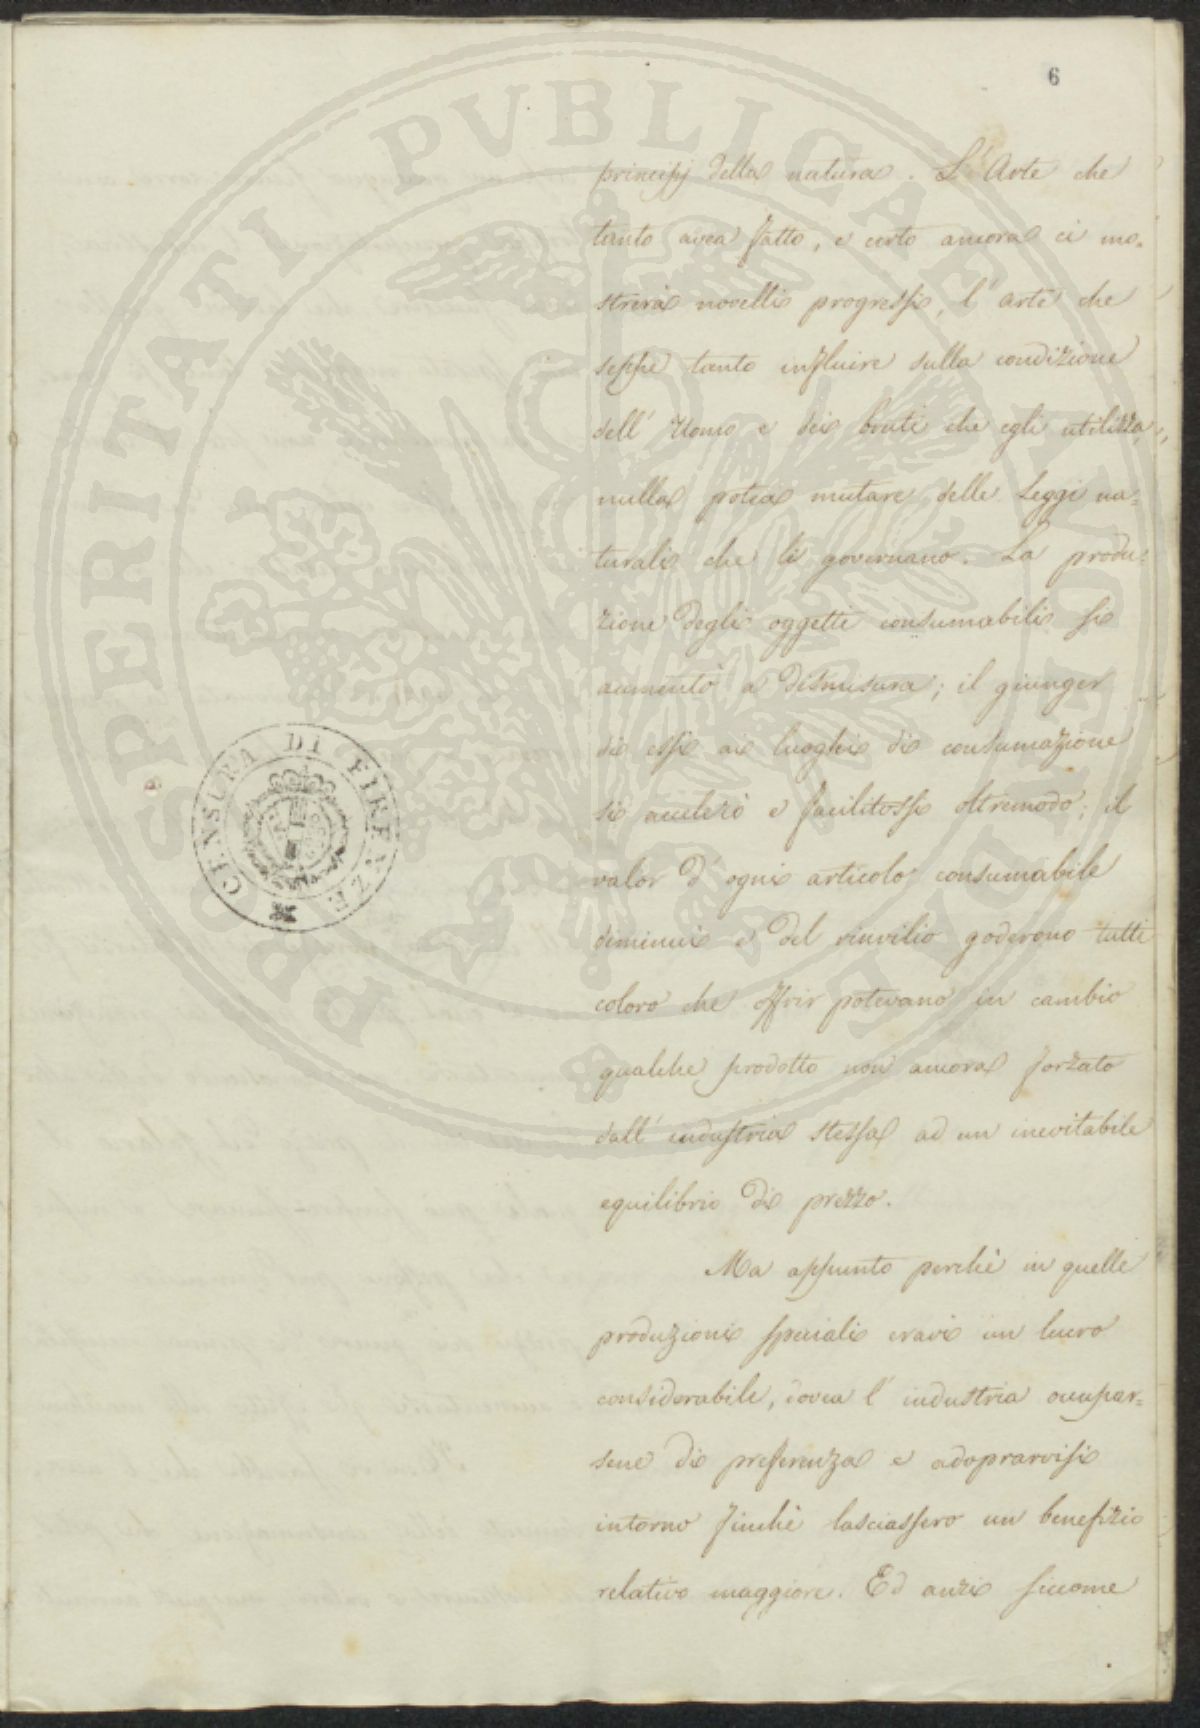 6
principj della natura. L'Arte che
tanto avea fatto, e certo ancora ci mo-
strerà novelli progressi, l'arte che
seppe tanto influire sulla condizione
dell'Uomo e dei bruti che egli utilizza,
nulla potea mutare delle Leggi na=
turali che li governano. La produ=
zione degli oggetti consumabili si
aumentò a dismisura; il giunger
di essi ai luoghi di consumazione
si accelerò e facilitossi oltremodo; il
valor d'ogni articolo consumabile
diminuì e del rinvilio goderono tutti
coloro che offrir potevano in cambio
qualche prodotto non ancora forzato
dall'industria stessa ad un inevitabile
equilibrio di prezzo.
Ma appunto perchè in quelle
produzioni speciali eravi un lucro
considerabile, dovea l'industria occupar=
sene di preferenza e adoprarvisi
intorno finchè lasciassero un benefizio
relativo maggiore. Ed anzi siccome
CENSURA DI FIRENZE
PROSPERITATI PVBLICAE AVGENDAE